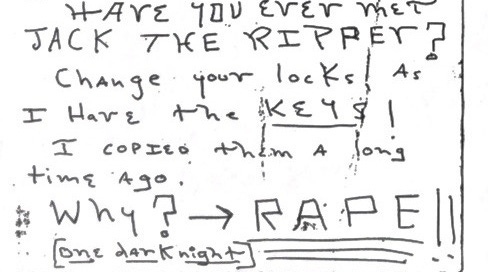 HAVE YOU EVER MET
JACK THE RIPPER?
Change your locks As
I HAVE the KEYS!
I COPIED them A long
time Ago.
Why? → RAPE!!
[one dark night]